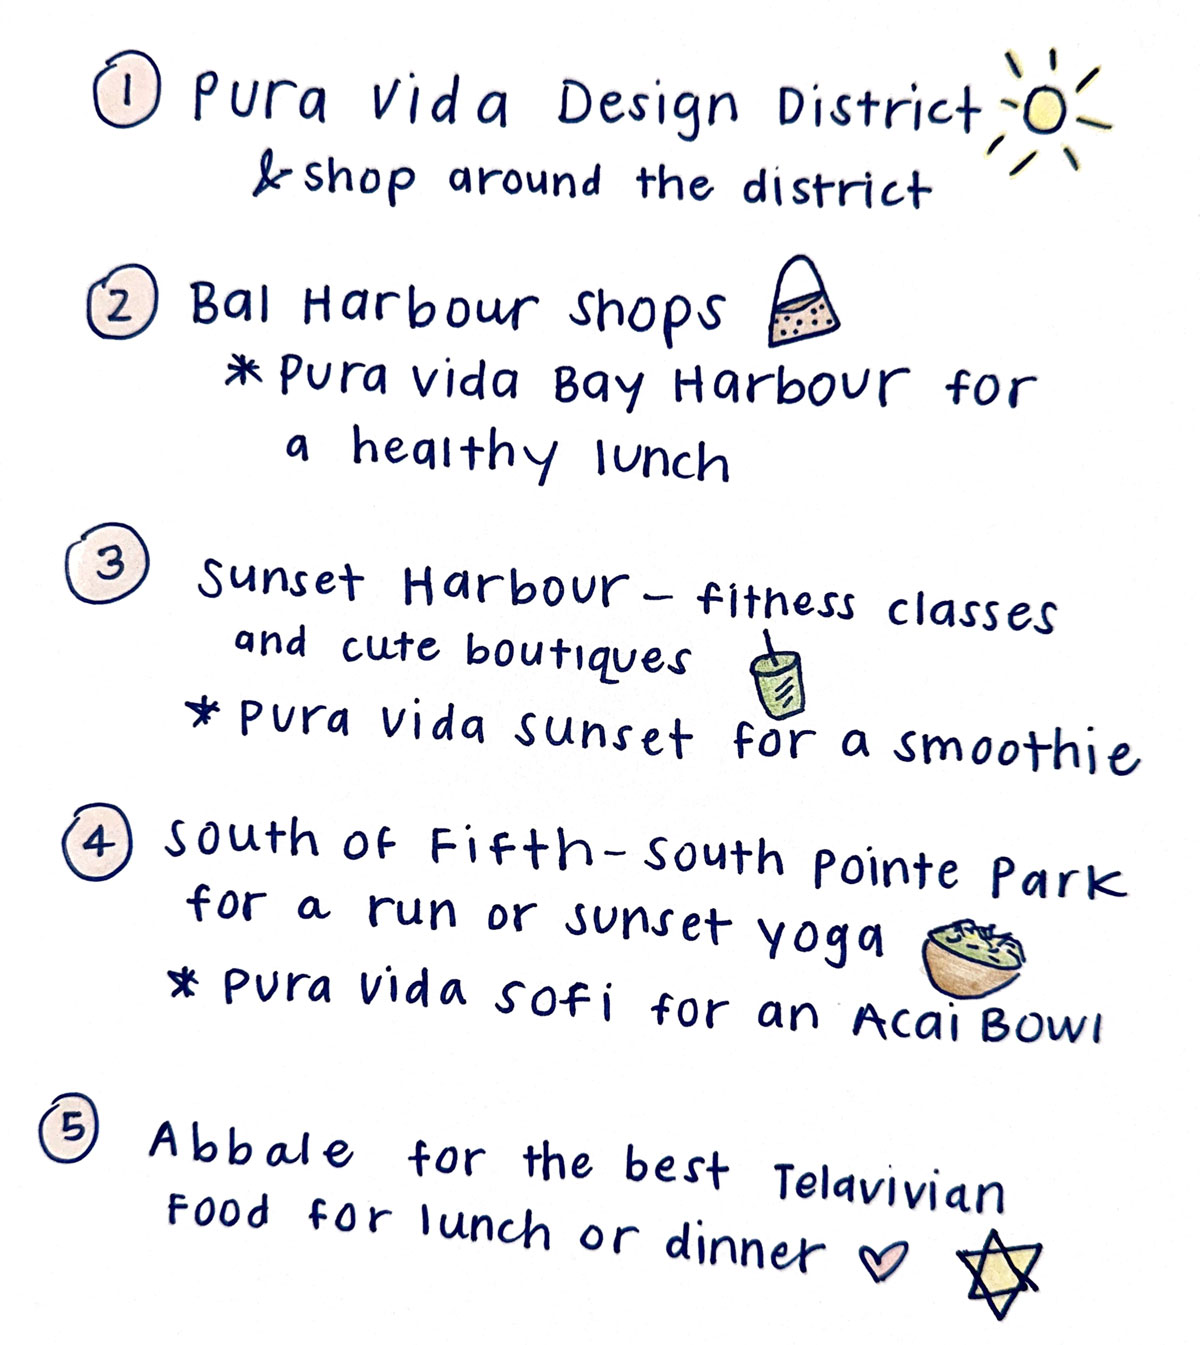 1 Pura Vida Design District
& shop around the district
2 Bal Harbour shops
* Pura vida Bay Harbour for
a healthy lunch
3 Sunset Harbour - fitness classes
and cute boutiques
* Pura vida sunset for a smoothie
4 South of Fifth - South Pointe Park
for a run or sunset yoga
* Pura vida sofi for an Acai Bowl
5 Abbale for the best Telavivian
Food for lunch or dinner